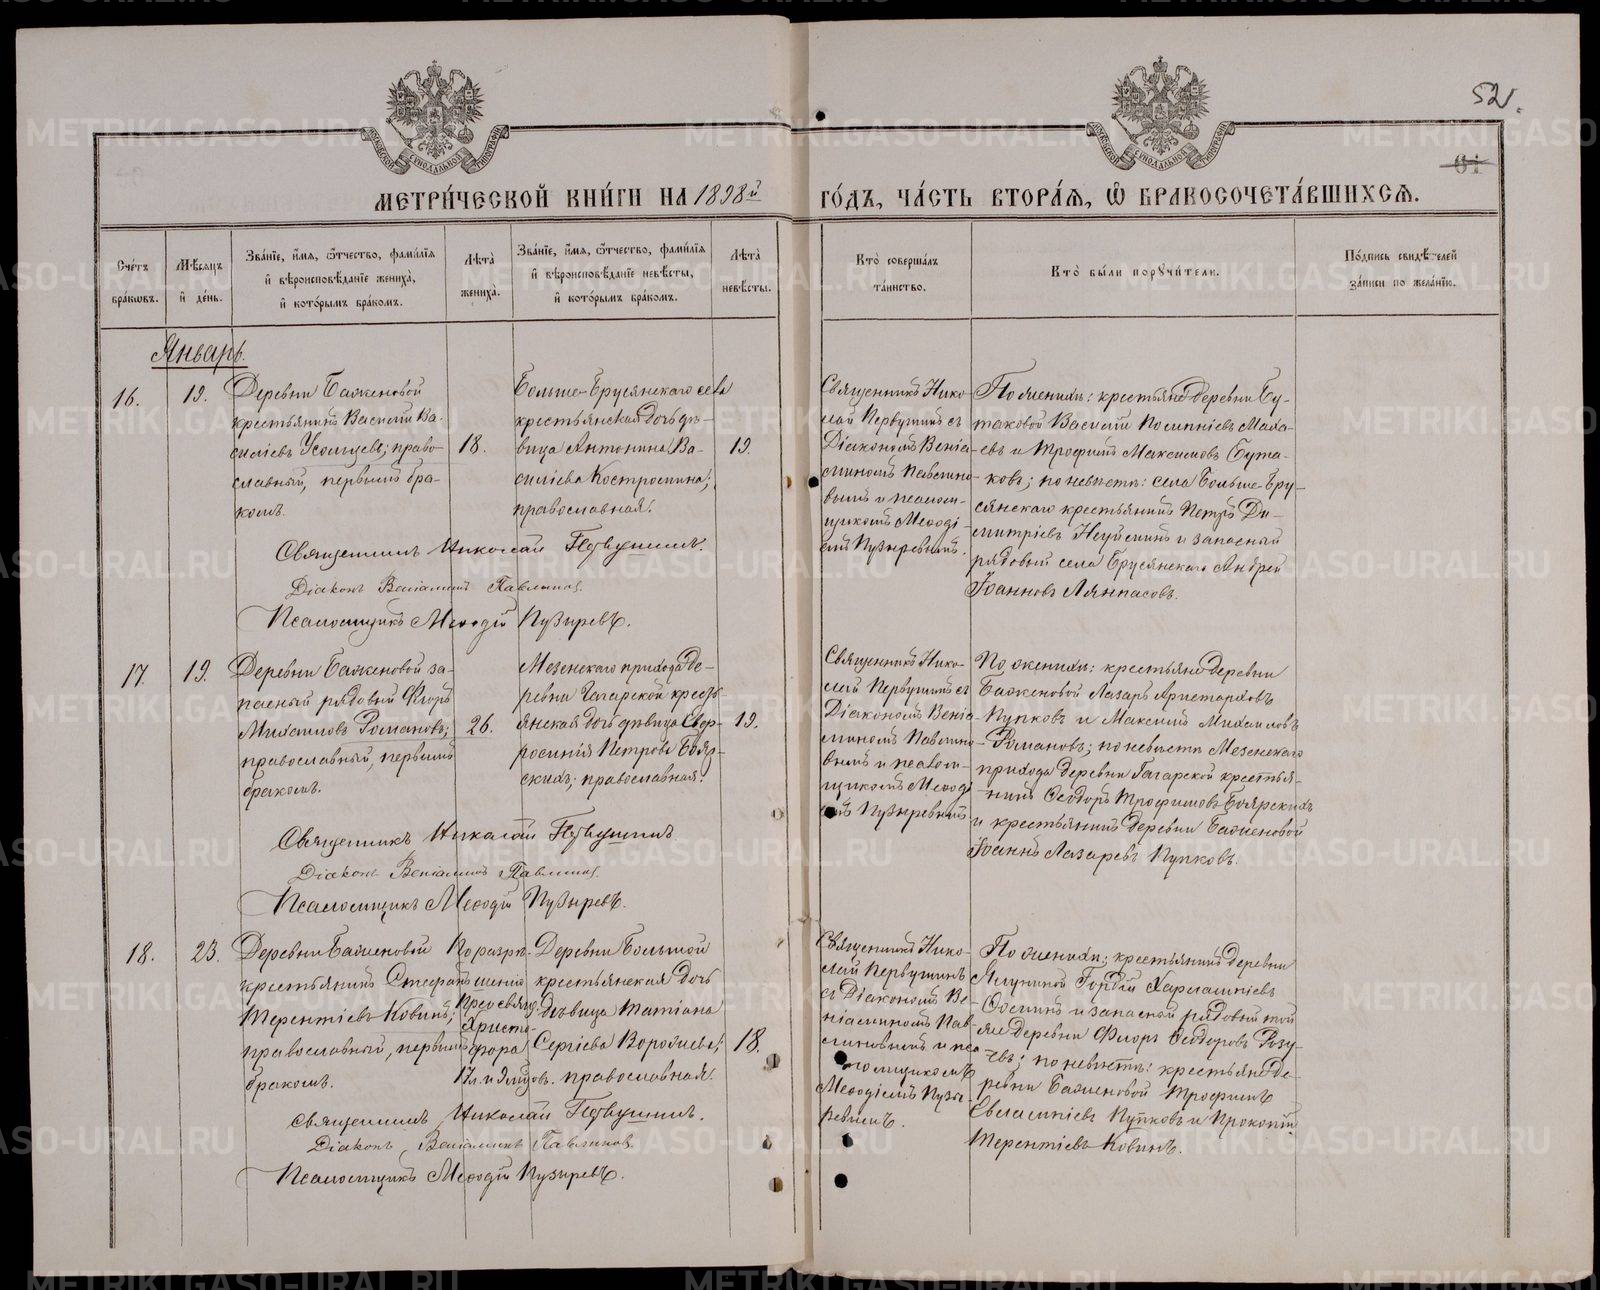 52.
61
МЕТРИ́ЧЕСКОЙ КНИ́ГИ НА 1898й ГО́ДЪ, ЧА́СТЬ ВТОРА́Я, Ѡ БРАКОСОЧЕТА́ВШИХСЯ.
Сче́тъ бра́ковъ.
Мѣ́сяцъ и́ де́нь.
Зва́нїе, и́мя, ѻ҆́тчество, фами́лїя и҆ вѣроисповѣ́данїе жениха̀, и҆ кото́рымъ бра́комъ.
Лѣ́та̀ жениха̀.
Зва́нїе, и́мя, ѻ҆́тчество, фами́лїя и҆ вѣроисповѣ́данїе невѣ́сты, и҆ кото́рымъ бра́комъ.
Лѣ́та̀ невѣ́сты.
Кто̀ соверша́лъ та́инство.
Кто̀ бы́ли порꙋчи́тели.
По́дпись свидѣ́телей за́писи по жела́нїю.
Январь.
16.
19.
Деревни Баженовой
крестьянинъ Василій Ва-
силіевъ Усольцевъ; право-
славный, первымъ бра-
комъ.
18.
Больше-Брусянскаго села
крестьянская дочь дѣ-
вица Антонина Ва-
силіева Костромина;
православная.
19.
Священникъ Нико-
лай Первушинъ съ
Діакономъ Веніа-
миномъ Павлино-
вымъ и псалом-
щикомъ Меѳоді-
емъ Пузыревымъ.
По женихѣ: крестьяне деревни Бу-
таковой Василій
и Трофимъ Максимовъ Бута-
ковъ; по невѣстѣ: села Больше-Бру-
сянскаго крестьянинъ Петръ Ди-
митріевъ Неуйминъ и запасный
рядовой села Брусянскаго Андрей
Іоанновъ Ляпасовъ.
Священникъ Николай Первушинъ.
Діаконъ Веніаминъ Павлиновъ.
Псаломщикъ Меѳодій Пузыревъ.
17.
19.
Деревни Баженовой за-
пасный рядовый Флоръ
Михаиловъ Романовъ;
православный, первымъ
бракомъ.
26.
Мезенскаго прихода де-
ревни Гагарской кресть-
янская дочь дѣвица Евф-
росинія Петрова Бояр-
скихъ; православная.
19.
Священникъ Нико-
лай Первушинъ съ
Діакономъ Веніа-
миномъ Павлино-
вымъ и псалом-
щикомъ Меѳоді-
емъ Пузыревымъ
По женихѣ: крестьяне деревни
Баженовой Лазарь Аристарховъ
Пупковъ и Максимъ Михаиловъ
Романовъ; по невѣстѣ Мезенскаго
прихода деревни Гагарской крестья-
нинъ Ѳеодоръ Трофимовъ Боярскихъ
и крестьянинъ деревни Баженовой
Іоаннъ Лазаревъ Пупковъ.
Священникъ Николай Первушинъ.
Діаконъ Веніаминъ Павлиновъ.
Псаломщикъ Меѳодій Пузыревъ.
18.
23.
Деревни Баженовой
крестьянинъ Стефанъ
Терентіевъ Ковинъ;
православный, первымъ
бракомъ.
По разрѣ-
шенію
Преосвящ.
Христо-
фора
17 л. и
Деревни Большой
крестьянская дочь
дѣвица Татіана
Сергіева Воробьева;
православная.
18.
Священникъ Нико-
лай Первушинъ
съ Діакономъ Ве-
ніаминомъ Пав-
линовымъ и пса-
ломщикомъ
Меѳодіемъ Пузы-
ревымъ.
По женихѣ: крестьянинъ деревни
Гордій Харлампіевъ
и запасной рядовый той
же деревни Флоръ Ѳеодоровъ
по невѣстѣ: крестьяне де-
ревни Баженовой Трофимъ
Евлампіевъ Пупковъ и Прокопій
Терентіевъ Ковинъ.
Священникъ Николай Первушинъ.
Діаконъ Веніаминъ Павлиновъ.
Псаломщикъ Меѳодій Пузыревъ.
METRIKI.GASO-URAL.RU